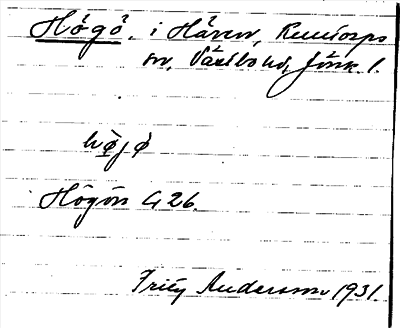 Högö, i Hären, Remtorps
sn, Västbo hd, Jönk. l.
højø
Högön G 26.
Fritz Andersson 1931.